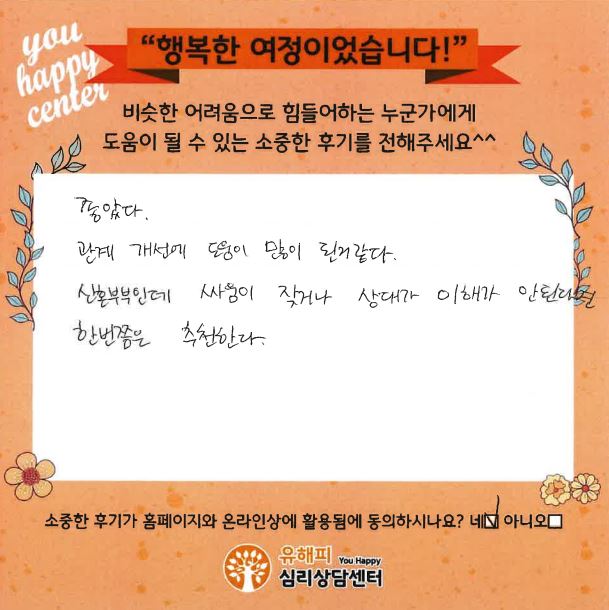 you
happy
center
“행복한 여정이었습니다!”
비슷한 어려움으로 힘들어하는 누군가에게
도움이 될 수 있는 소중한 후기를 전해주세요^^
좋았다.
관계 개선에 도움이 많이 된거같다.
신혼부부인데 싸움이 잦거나 상대가 이해가 안된다면
한번쯤은 추천한다.
소중한 후기가 홈페이지와 온라인상에 활용됨에 동의하시나요? 네☑ 아니오☐
유해피 You Happy
심리상담센터